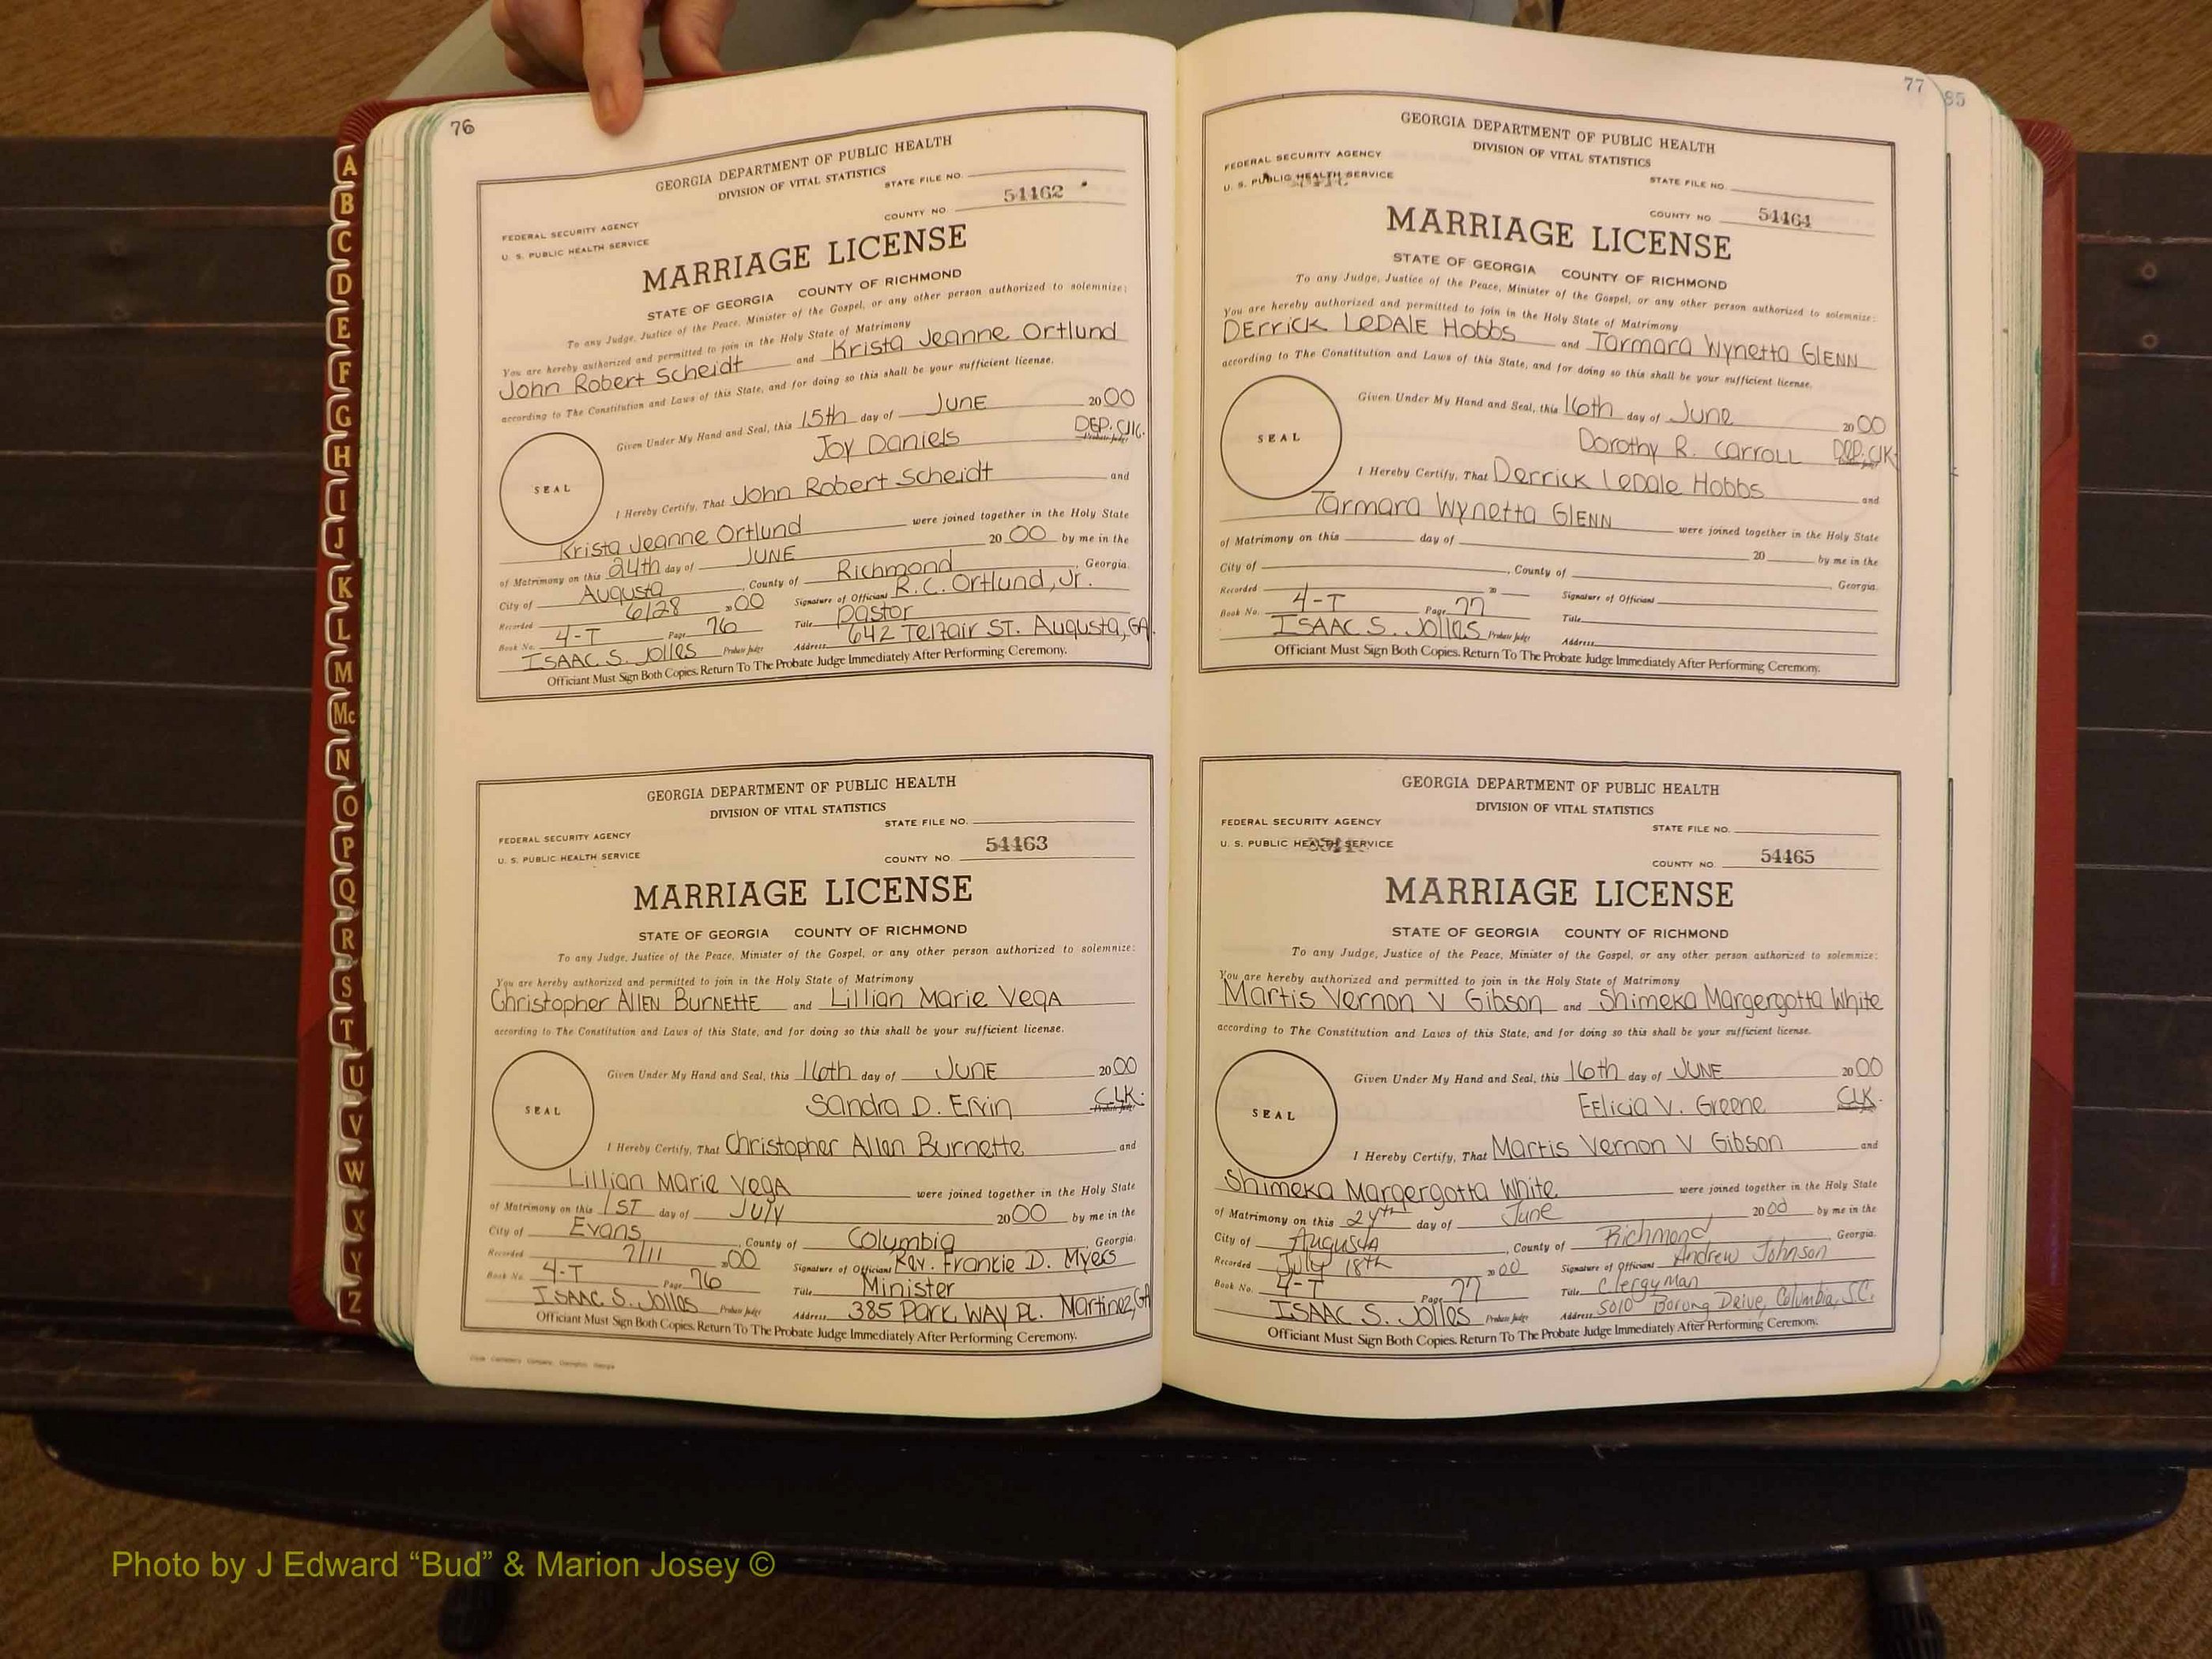 76
GEORGIA DEPARTMENT OF PUBLIC HEALTH
DIVISION OF VITAL STATISTICS
STATE FILE NO.
FEDERAL SECURITY AGENCY
U. S. PUBLIC HEALTH SERVICE
COUNTY NO 54462
MARRIAGE LICENSE
STATE OF GEORGIA COUNTY OF RICHMOND
To any Judge, Justice of the Peace, Minister of the Gospel, or any other person authorized to solemnize;
You are hereby authorized and permitted to join in the Holy State of Matrimony
John Robert Scheidt and Krista Jeanne Ortlund
according to The Constitution and Laws of this State, and for doing so this shall be your sufficient license.
Given Under My Hand and Seal, this 15th day of JUNE 2000
SEAL
Joy Daniels DEP. Clk. Probate Judge
I Hereby Certify, That John Robert Scheidt and
Krista Jeanne Ortlund were joined together in the Holy State
of Matrimony on this 24th day of JUNE 2000 by me in the
City of Augusta, County of Richmond, Georgia.
Recorded 6/28 2000 Signature of Officiant R.C. Ortlund, Jr.
Book No. 4-T Page 76 Title Pastor
ISAAC S. Jolles Probate Judge Address 642 Telfair ST. Augusta, GA.
Officiant Must Sign Both Copies. Return To The Probate Judge Immediately After Performing Ceremony.
GEORGIA DEPARTMENT OF PUBLIC HEALTH
DIVISION OF VITAL STATISTICS
STATE FILE NO.
FEDERAL SECURITY AGENCY
U. S. PUBLIC HEALTH SERVICE
COUNTY NO. 54463
MARRIAGE LICENSE
STATE OF GEORGIA COUNTY OF RICHMOND
To any Judge, Justice of the Peace, Minister of the Gospel, or any other person authorized to solemnize:
You are hereby authorized and permitted to join in the Holy State of Matrimony
Christopher Allen Burnette and Lillian Marie Vega
according to The Constitution and Laws of this State, and for doing so this shall be your sufficient license.
Given Under My Hand and Seal, this 16th day of JUNE 2000
SEAL
Sandra D. Ervin CLK. Probate Judge
I Hereby Certify, That Christopher Allen Burnette and
Lillian Marie Vega were joined together in the Holy State
of Matrimony on this 1ST day of July 2000 by me in the
City of Evans, County of Columbia, Georgia.
Recorded 7/11 2000 Signature of Officiant Rev. Frankie D. Myers
Book No. 4-T Page 76 Title Minister
ISAAC S. Jolles Probate Judge Address 385 Park Way Pl. Martinez, GA
Officiant Must Sign Both Copies. Return To The Probate Judge Immediately After Performing Ceremony.
77
85
GEORGIA DEPARTMENT OF PUBLIC HEALTH
DIVISION OF VITAL STATISTICS
FEDERAL SECURITY AGENCY
U. S. PUBLIC HEALTH SERVICE
STATE FILE NO
COUNTY NO 54464
MARRIAGE LICENSE
STATE OF GEORGIA COUNTY OF RICHMOND
To any Judge, Justice of the Peace, Minister of the Gospel, or any other person authorized to solemnize:
You are hereby authorized and permitted to join in the Holy State of Matrimony
Derrick LeDale Hobbs and Tarmara Wynetta Glenn
according to The Constitution and Laws of this State, and for doing so this shall be your sufficient license.
Given Under My Hand and Seal, this 16th day of June 2000
SEAL
Dorothy R. Carroll Dep. Clk.
I Hereby Certify, That Derrick LeDale Hobbs and
Tarmara Wynetta Glenn were joined together in the Holy State
of Matrimony on this day of 20 by me in the
City of , County of , Georgia.
Recorded 20 Signature of Officiant
Book No. 4-T Page 77 Title
ISAAC S. Jolles Probate Judge Address
Officiant Must Sign Both Copies. Return To The Probate Judge Immediately After Performing Ceremony.
GEORGIA DEPARTMENT OF PUBLIC HEALTH
DIVISION OF VITAL STATISTICS
FEDERAL SECURITY AGENCY
STATE FILE NO.
U. S. PUBLIC HEALTH SERVICE
COUNTY NO. 54465
MARRIAGE LICENSE
STATE OF GEORGIA COUNTY OF RICHMOND
To any Judge, Justice of the Peace, Minister of the Gospel, or any other person authorized to solemnize:
You are hereby authorized and permitted to join in the Holy State of Matrimony
Martis Vernon V Gibson and Shimeka Margergotta White
according to The Constitution and Laws of this State, and for doing so this shall be your sufficient license.
Given Under My Hand and Seal, this 16th day of JUNE 2000
SEAL
Felicia V. Greene CLK.
I Hereby Certify, That Martis Vernon V Gibson and
Shimeka Margergotta White were joined together in the Holy State
of Matrimony on this 24th day of June 2000 by me in the
City of Augusta, County of Richmond, Georgia.
Recorded July 18th 2000 Signature of Officiant Andrew Johnson
Book No. 4-T Page 77 Title Clergyman
ISAAC S. Jolles Probate Judge Address 5010 Drive, Columbia, S.C.
Officiant Must Sign Both Copies. Return To The Probate Judge Immediately After Performing Ceremony.
A
B
C
D
E
F
G
H
I
J
K
L
M
Mc
N
O
P
Q
R
S
T
U
V
W
X
Y
Z
Photo by J Edward “Bud” & Marion Josey ©